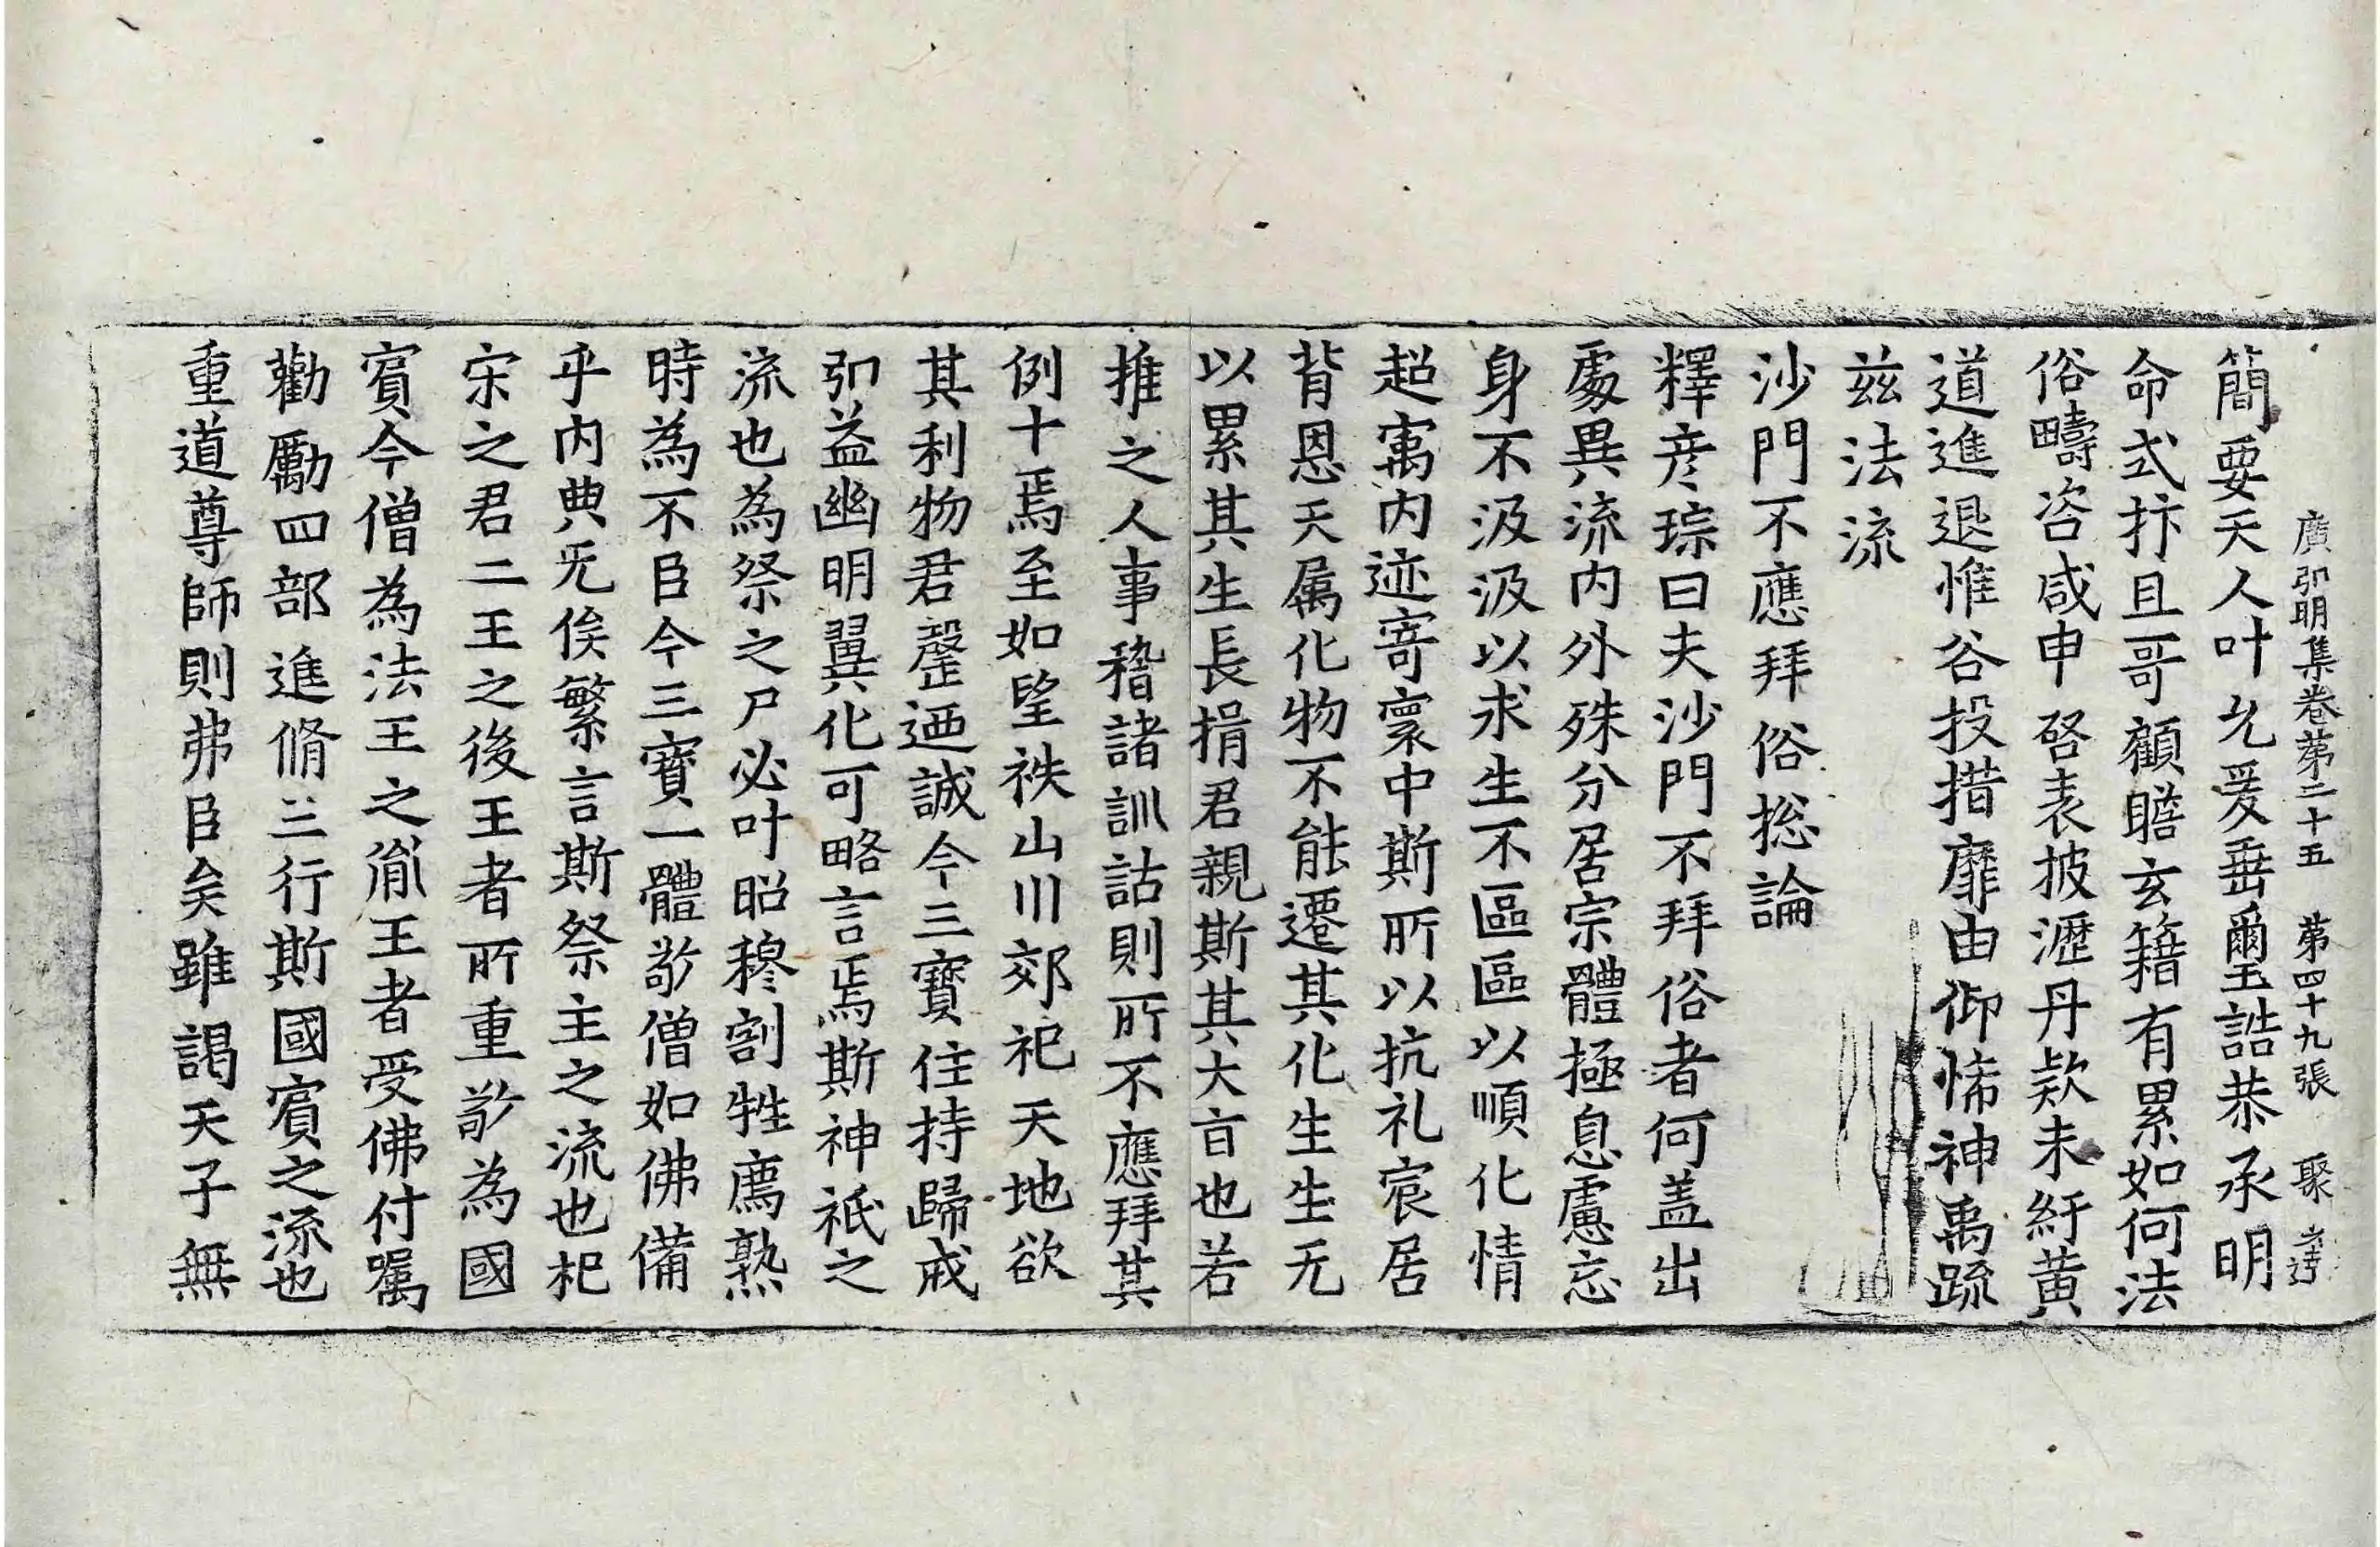 廣弘明集卷第二十五　第四十九張　聚
簡要天人叶允爰垂爾玉誥恭承明
命式抃且哥顧瞻玄籍有累如何法
俗疇咨咸申啓表披瀝丹款未紆黃
道進退惟谷投措靡由仰悕神禹疏
玆法流
沙門不應拜俗揔論
釋彦琮曰夫沙門不拜俗者何盖出
處異流内外殊分居宗體極息慮忘
身不汲汲以求生不區區以順化情
超寓内迹寄寰中斯所以抗礼宸居
背恩天属化物不能遷其化生生无
以累其生長揖君親斯其大旨也若
推之人事稽諸訓詁則所不應拜其
例十焉至如望秩山川郊祀天地欲
其利物君罄迺誠今三寶住持歸戒
弘益幽明翼化可略言焉斯神祇之
流也為祭之尸必叶昭穆割牲薦熟
時為不臣今三寶一體敬僧如佛備
乎内典无俟繁言斯祭主之流也杞
宋之君二王之後王者所重敬為國
賓今僧為法王之胤王者受佛付囑
勸勵四部進脩三行斯國賓之流也
重道尊師則弗臣矣雖謁天子無